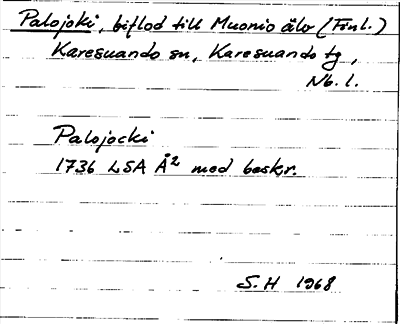 Palojoki, biflod till Muonio älv (Finl.)
Karesuando sn, Karesuando tg,
Nb. l.
Palojocki
1736 LSA Å2 med beskr.
S.H 1968